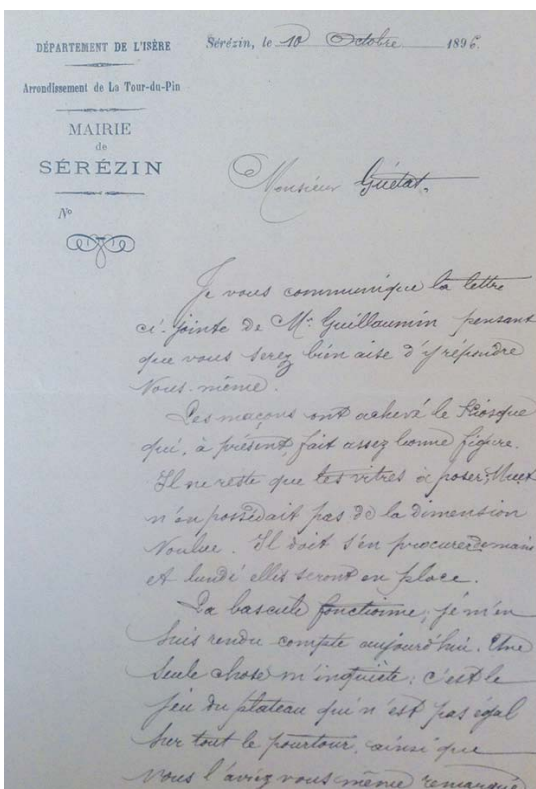 DÉPARTEMENT DE L'ISÈRE
Arrondissement de La Tour-du-Pin
MAIRIE
de
SÉRÉZIN
N°
Sérézin, le 10 Octobre 1896.
Monsieur Guétat.
Je vous communique la lettre
ci-jointe de Mr Guillaumin pensant
que vous serez bien aise d'y répondre
Vous-même.
Les maçons ont achevé le Kiosque
qui, à présent, fait assez bonne figure.
Il ne reste que les vitres à poser;
n'en possédait pas de la dimension
Voulue. Il doit s'en procurer demain
et lundi elles seront en place.
La bascule fonctionne; je m'en
suis rendu compte aujourd'hui. Une
seule chose m'inquiète: c'est le
jeu du plateau qui n'est pas égal
sur tout le pourtour, ainsi que
vous l'aviez vous même remarqué